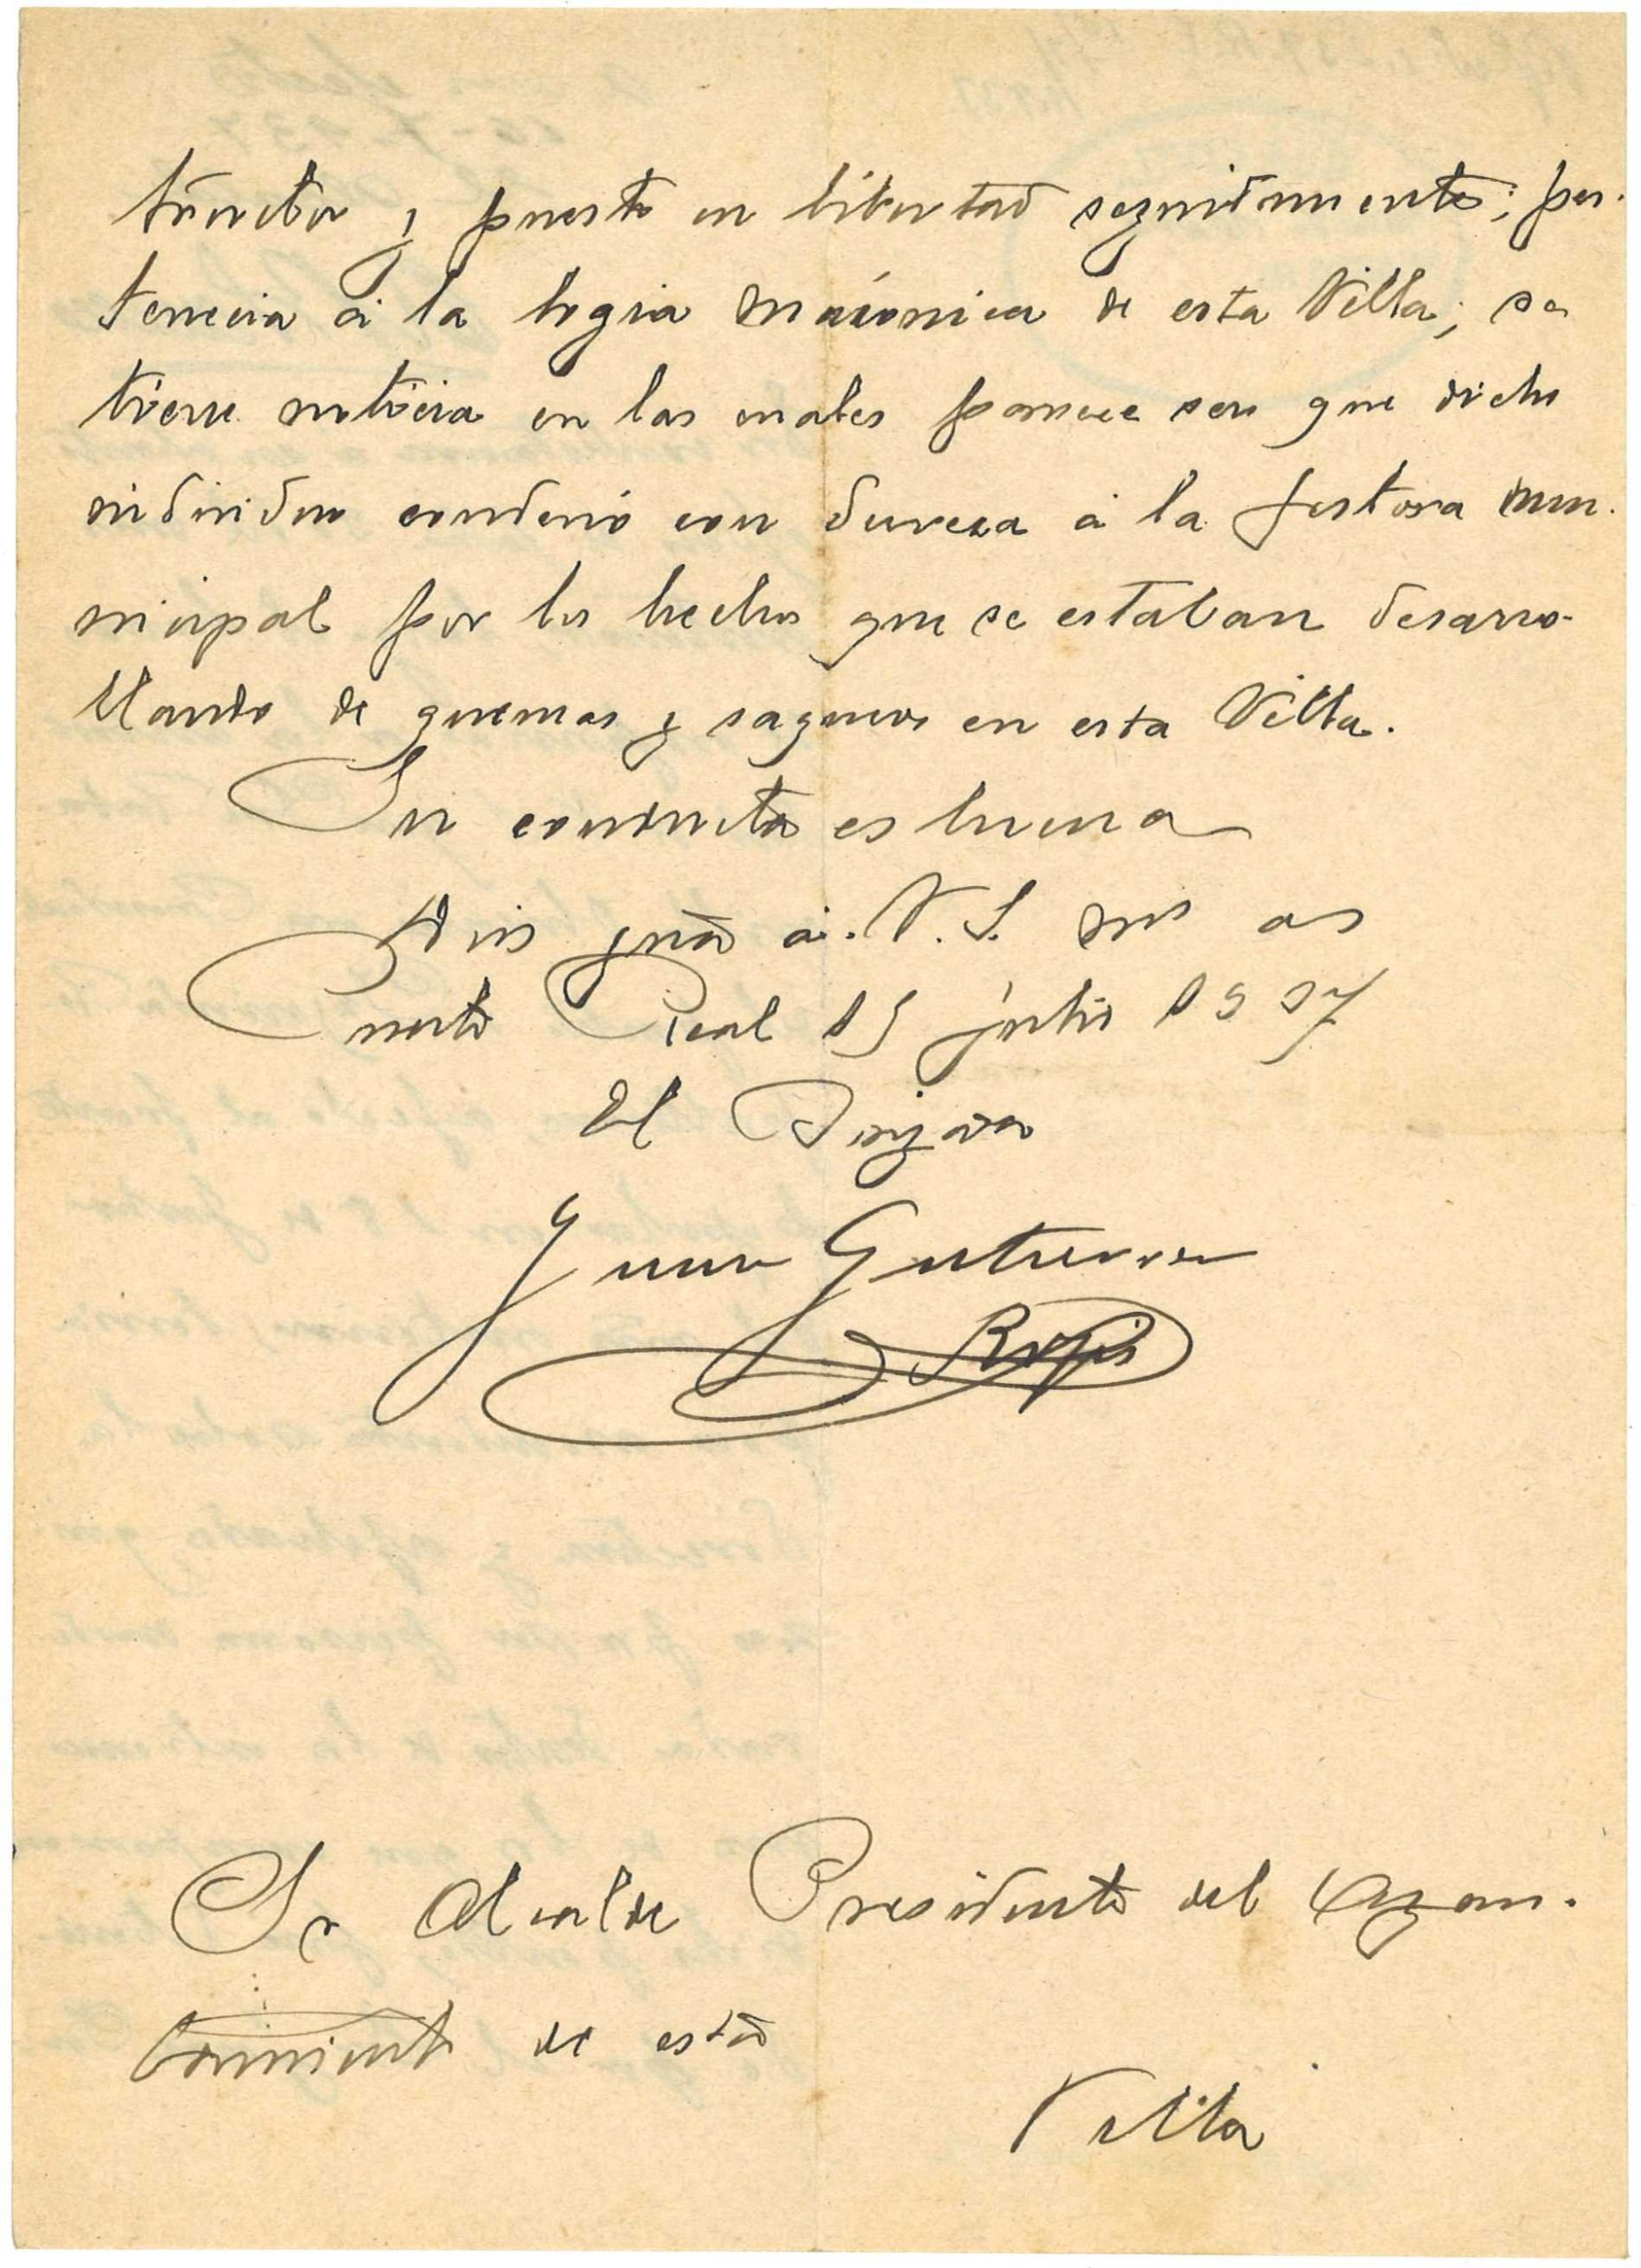 y puesto en libertad seguidamente; per-
tenecia á la logia masonica de esta Villa; se
tiene noticia en las cuales parece ser que dicho
individuo condenó con dureza á la gestora mu-
nicipal por los hechos que se estaban desarro-
llando de quemas y saqueos en esta Villa.
Su conducta es buena
Dios gua á. V. S. ms as
Puerto Real 15 julio 1937
El
Juan Gutierrez
Sr Alcalde Presidente del Ayun-
tamiento de esta
Villa